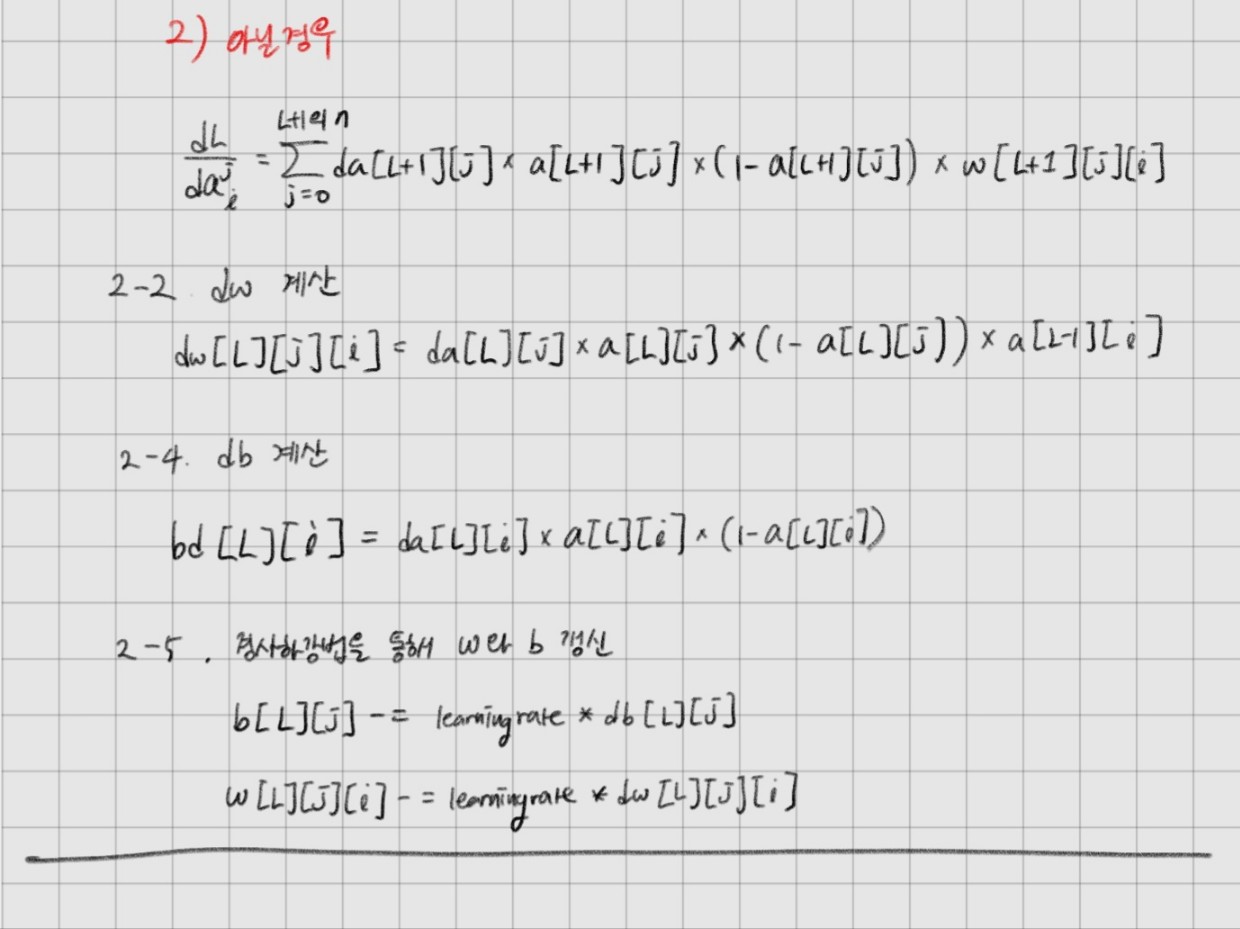 2) 아닐경우
L+1의 n
dL/da^j_i = Σ da[L+1][j] × a[L+1][j] × (1- a[L+1][j]) × w[L+1][j][i]
j=0
2-2. dw 계산
dw[L][j][i] = da[L][j] × a[L][j] × (1- a[L][j]) × a[L-1][i]
2-4. db 계산
bd[L][i] = da[L][i] × a[L][i] × (1-a[L][i])
2-5. 경사하강법을 통해 w와 b 갱신
b[L][j] -= learningrate * db[L][j]
w[L][j][i] -= learningrate * dw[L][j][i]